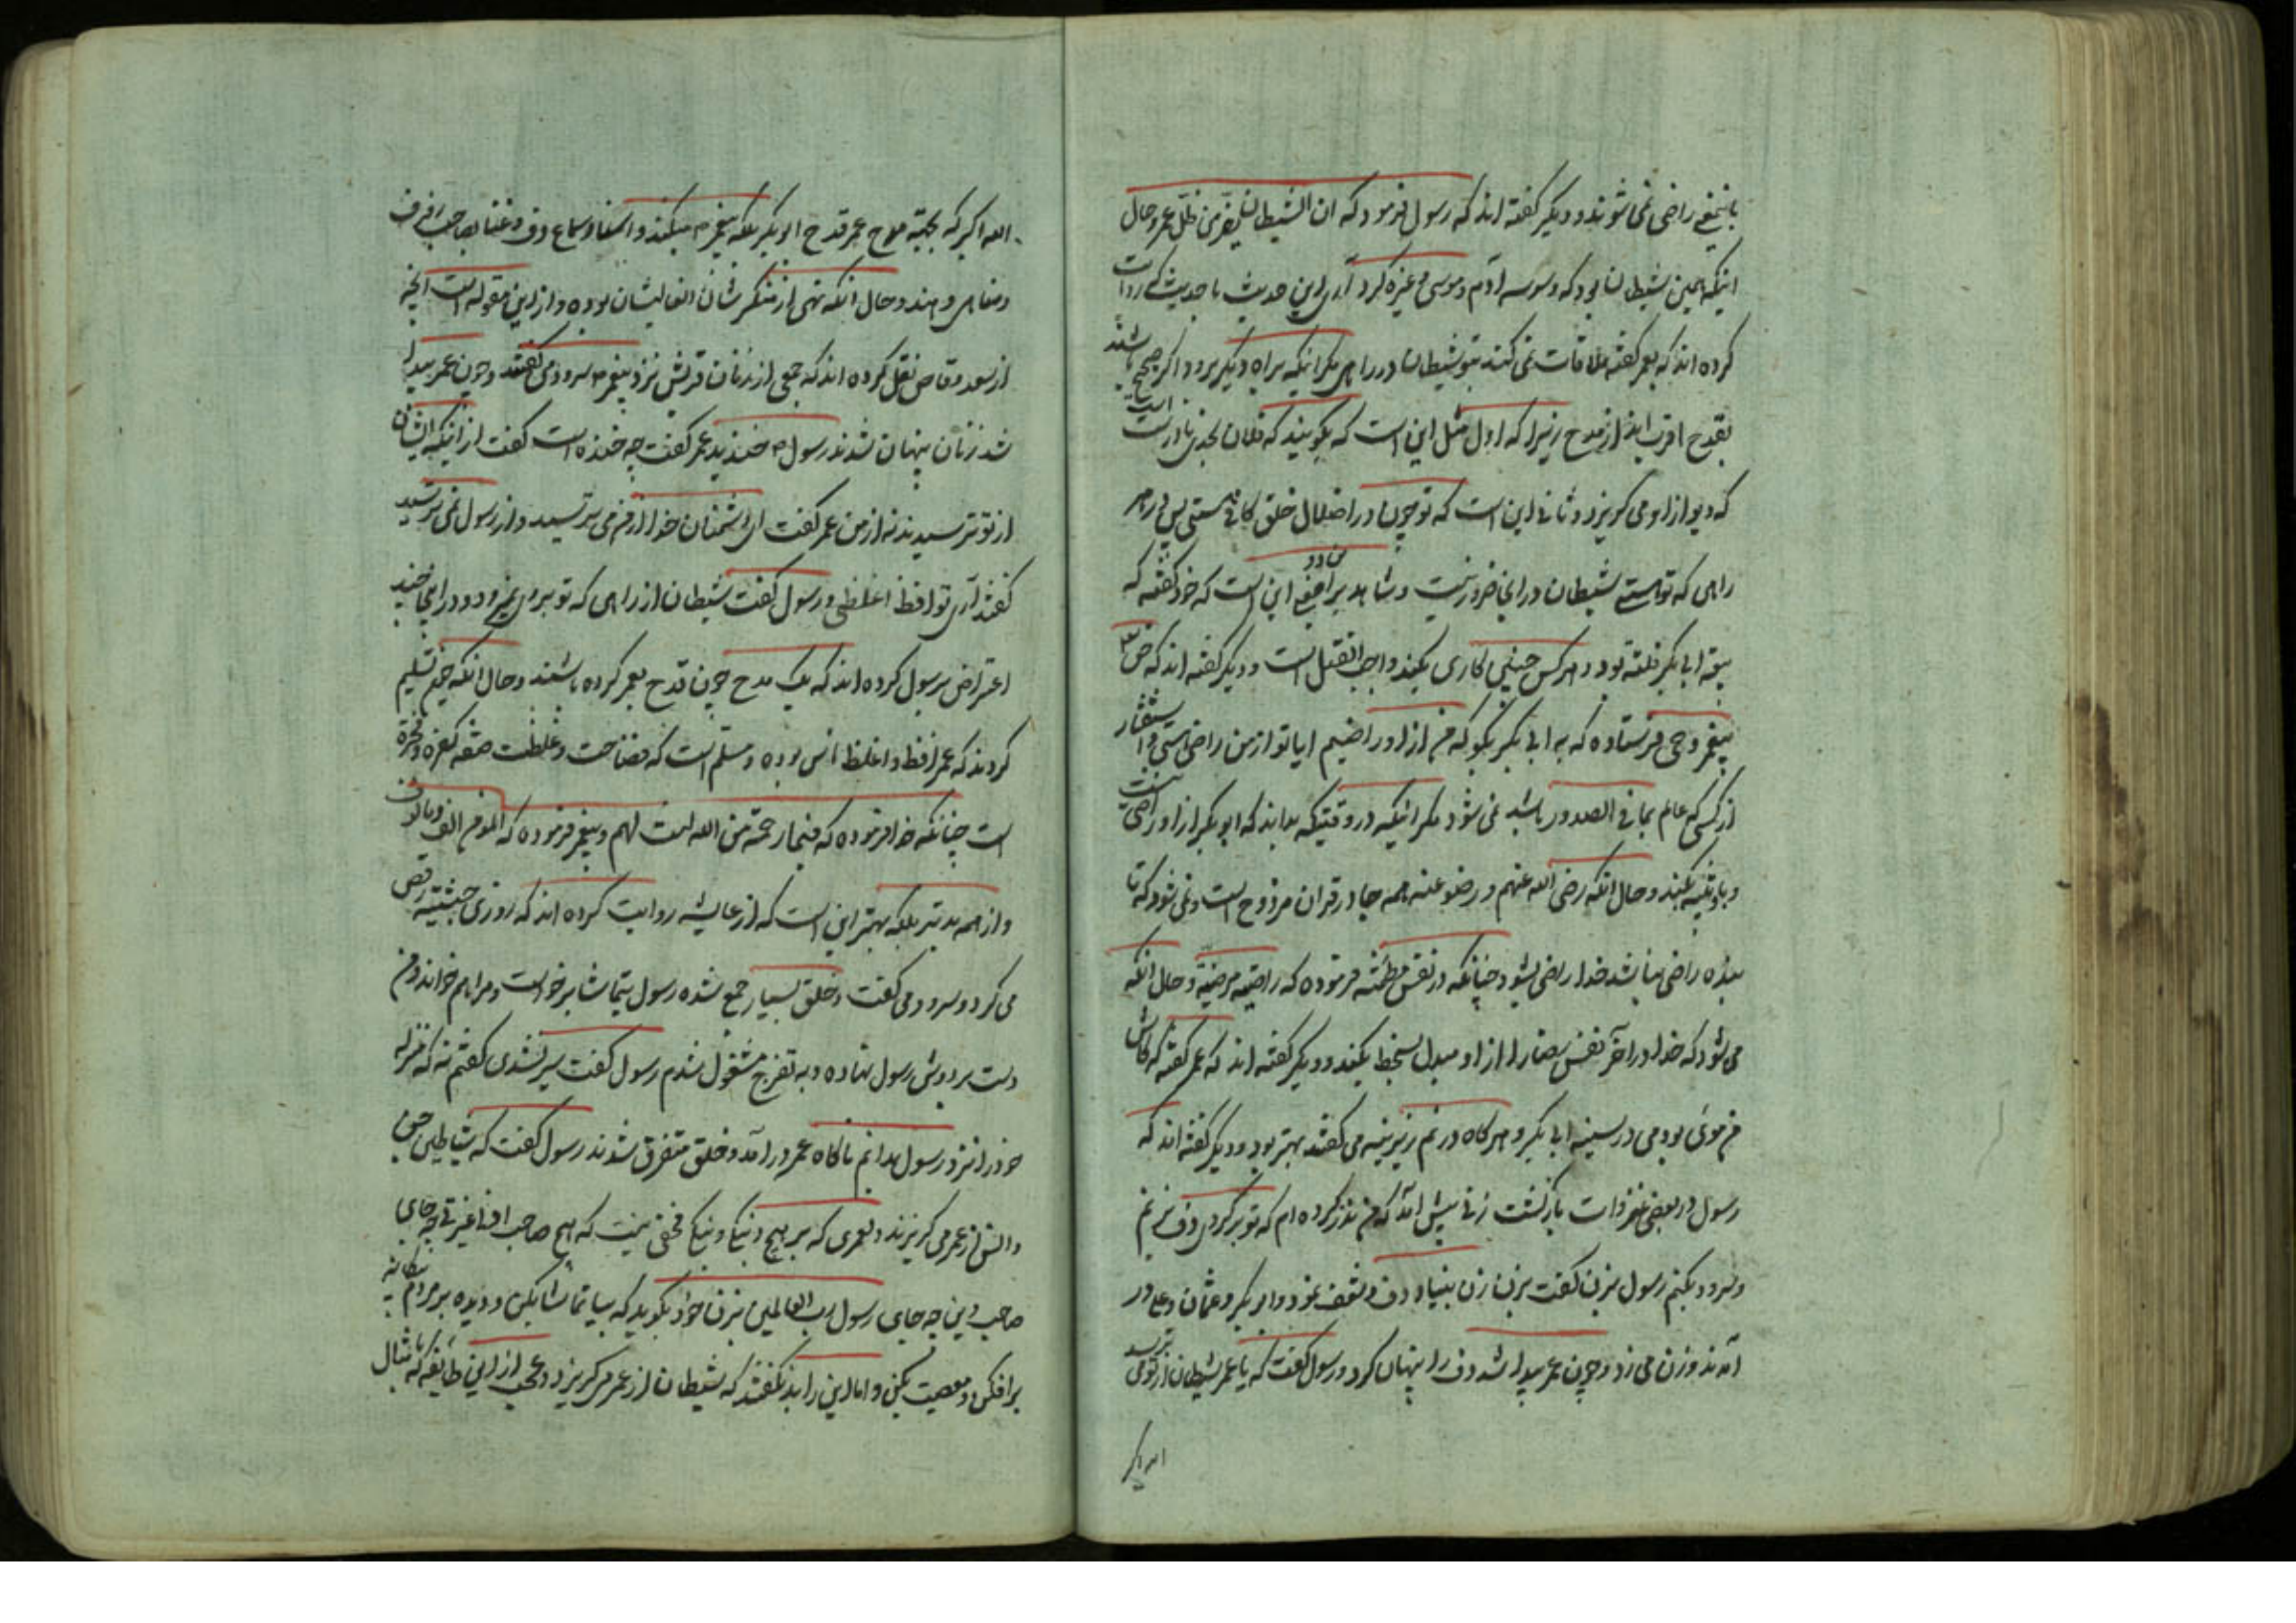 باینمعنی راضی نمی شوند و دیگر گفته اند که رسول فرمود که ان الشیطان لیفر من ظل عمر و حال
اینکه همین شیطان بود که وسوسه آدم و موسی و غیره کرد آری این حدیث با حدیثی که روایت
کرده اند که بعمر گفته ملاقات نمی کند بتو شیطان در راهی مگر اینکه براه دیگر برود اگر صحیح باشند
بقدح اقرب اند از مدح زیرا که اول مثل این است که بگویند که فلان بحدی نادرست است
که دیو از او می گریزد و ثانی این است که تو چون در اضلال خلق کافی هستی پس در هر
راهی که تو هستی شیطان در انجا ضرور نیست و شاهد براین معنی این است که خود گفته که
بیعة ابی بکر فلتة بود و هر کس چنین کاری بکند واجب القتل است و دیگر گفته اند که حق تع
پیغمبر وحی فرستاده که به ابی بکر بگو که من از او راضیم ایا تو از من راضی هستی و استفسار
از کسی که عالم بما فی الصدور باشد نمی شود مگر اینکه در وقتیکه بداند که ابو بکر از او راضی نیست
و حال انکه رضی الله عنهم و رضوا عنه همه جا در قران مزدوج است و نمی شود که تا
بنده راضی نباشد خدا راضی بشود چنانکه در نفس مطمئنه فرموده که راضیه مرضیه و حال انکه
می شود که خدا در آخر نفس رضا را از او مبدل بسخط بکند و دیگر گفته اند که عمر گفته که کاش
من موئی بودمی در سینه ابی بکر و هر گاه در نم زیرینه می گفتند بهتر بود و دیگر گفته اند که
رسول در بعضی غزوات بازگشت زنی پیش آمد که من نذر کرده ام که تو برگردی دف بزنم
و سرود بکنم رسول بزن گفت بزن زن بنیاد دف و شعف نمود و ابو بکر و عثمان و علی در
آمدند و زن می زد و چون عمر پیدا شد دف را پنهان کرد و رسول گفت که یا عمر شیطان از تو می ترسد
الله اکبر
الله اکبر که بجهة مدح عمر قدح ابو بکر بلکه پیغمبر م میکنند و اسناد سماع دف و غنا بصاحب شرف
و معاصی دهند و حال انکه نهی از منکر شان الغالیشان بوده و از این مقوله است انچه
از سعد وقاص نقل کرده اند که جمعی از زنان قریش نزد پیغمبر م سرود می گفتند و چون عمر پیدا
شد زنان پنهان شدند رسول م خندید عمر گفت چه خنده است گفت از اینکه ایشان
از تو ترسیدند نه از من عمر گفت ای دشمنان خدا از من می ترسید و از رسول نمی ترسید
گفتند آری تو افظ اغلظی و رسول گفت شیطان از راهی که تو بروی نمی رود و در اینجا چند
اعتراض برسول کرده اند که یک مدح چون قدح بعمر کرده باشند و حال انکه خود تسلیم
کردند که عمر افظ و اغلظ ناس بوده و مسلم است که فضاحت و غلظت صفه کفره و فجره
است چنانکه خدا فرموده که فبما رحمة من الله لنت لهم و پیغمبر فرموده که المومن الف و مالوف
و از همه بدتر بلکه بهتر این است که از عایشه روایت کرده اند که روزی حبشیه رقص
می کرد و سرود می گفت و خلق بسیار جمع شده رسول بتماشا برخواست و مرا هم خواند و من
دست بر دوش رسول نهاده و به تفرج مشغول شدم رسول گفت سیر نشدی گفتم نه که منزله
خود را نزد رسول بدانم ناگاه عمر در آمد و خلق متفرق شدند رسول گفت که شیاطین جن
و انس از عمر می گریزند و لعمری که بر هیچ دنیکا و نیک مخفی نیست که هیچ صاحب افنا غیرتی چه جای
صاحب دین چه جای رسول رب العالمین بزن خود بگوید که بیا تماشا بکن و دیده بر مردم بیگانه
برافکن و معصیت بکن و اما این را بد نگفتند که شیطان از عمر می گریزد و عجب از این طایفه که بامثال